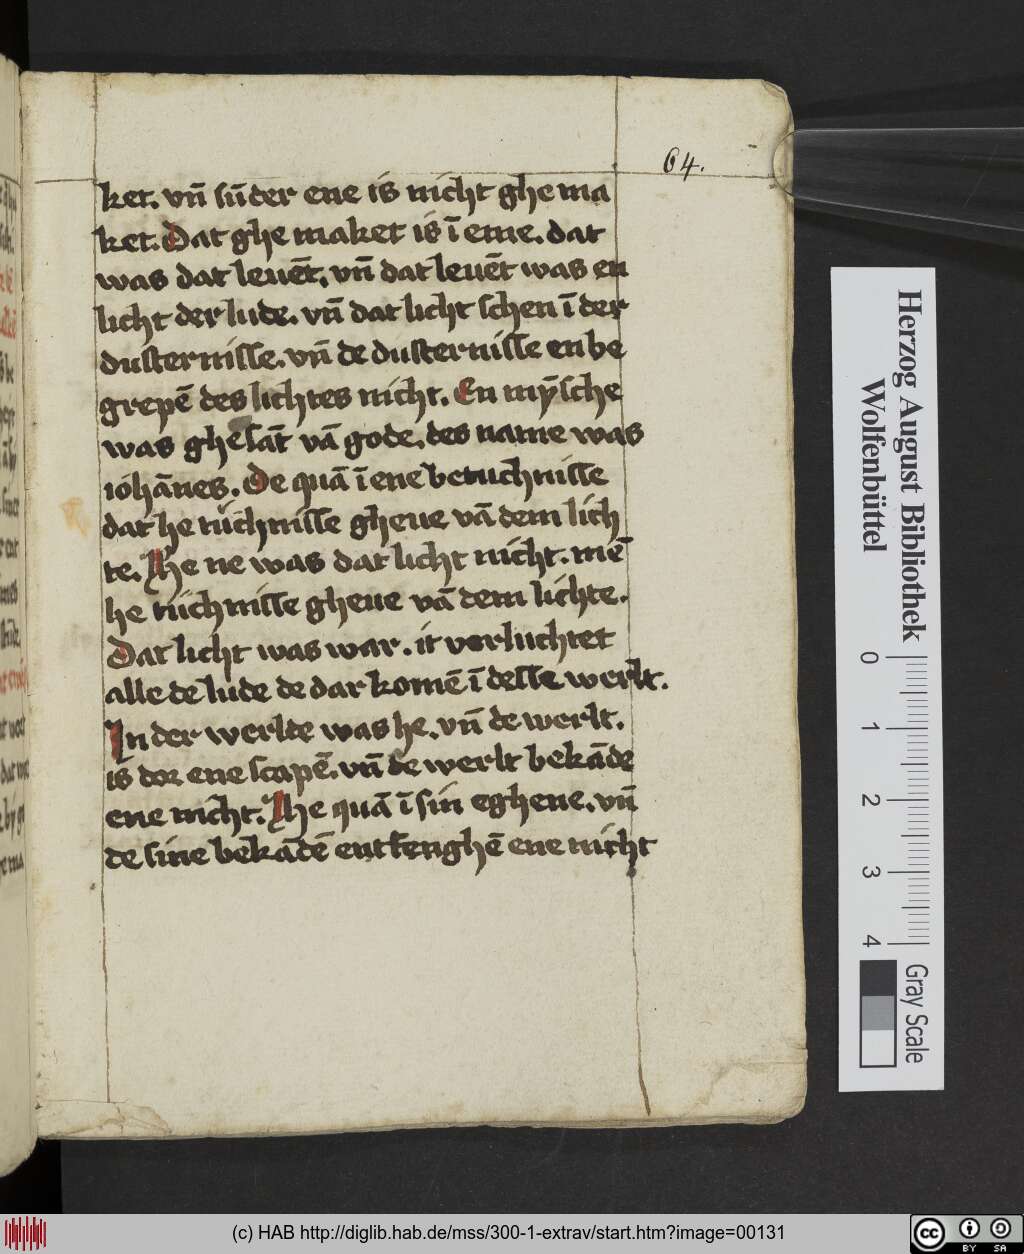 64.
ket. vn̄ sūder ene is nicht ghe ma
ket. Dat ghe maket is ī eme. dat
was dat leuēt. vn̄ dat leuēt was en
licht der lude. vn̄ dat licht schen ī der
dusternisse. vn̄ de dusternisse en be
grepē des lichtes nicht. En mȳsche
was ghe sāt vā gode. des name was
iohānes. De quā ī ene betuchnisse
dat he tuchnisse gheue vā dem lich
te. He ne was dat licht nicht. mē
he tuchnisse gheue vā dem lichte.
Dat licht was war. it vorluchtet
alle de lude de dar komē ī desse werlt.
In der werlde was he. vn̄ de werlt.
is dor ene scapē. vn̄ de werlt bekāde
ene nicht. He quā ī sin eghene. vn̄
de sine bekādē entfenghē ene nicht
Herzog August Bibliothek
Wolfenbüttel
0 1 2 3 4
Gray Scale
(c) HAB http://diglib.hab.de/mss/300-1-extrav/start.htm?image=00131
cc BY SA